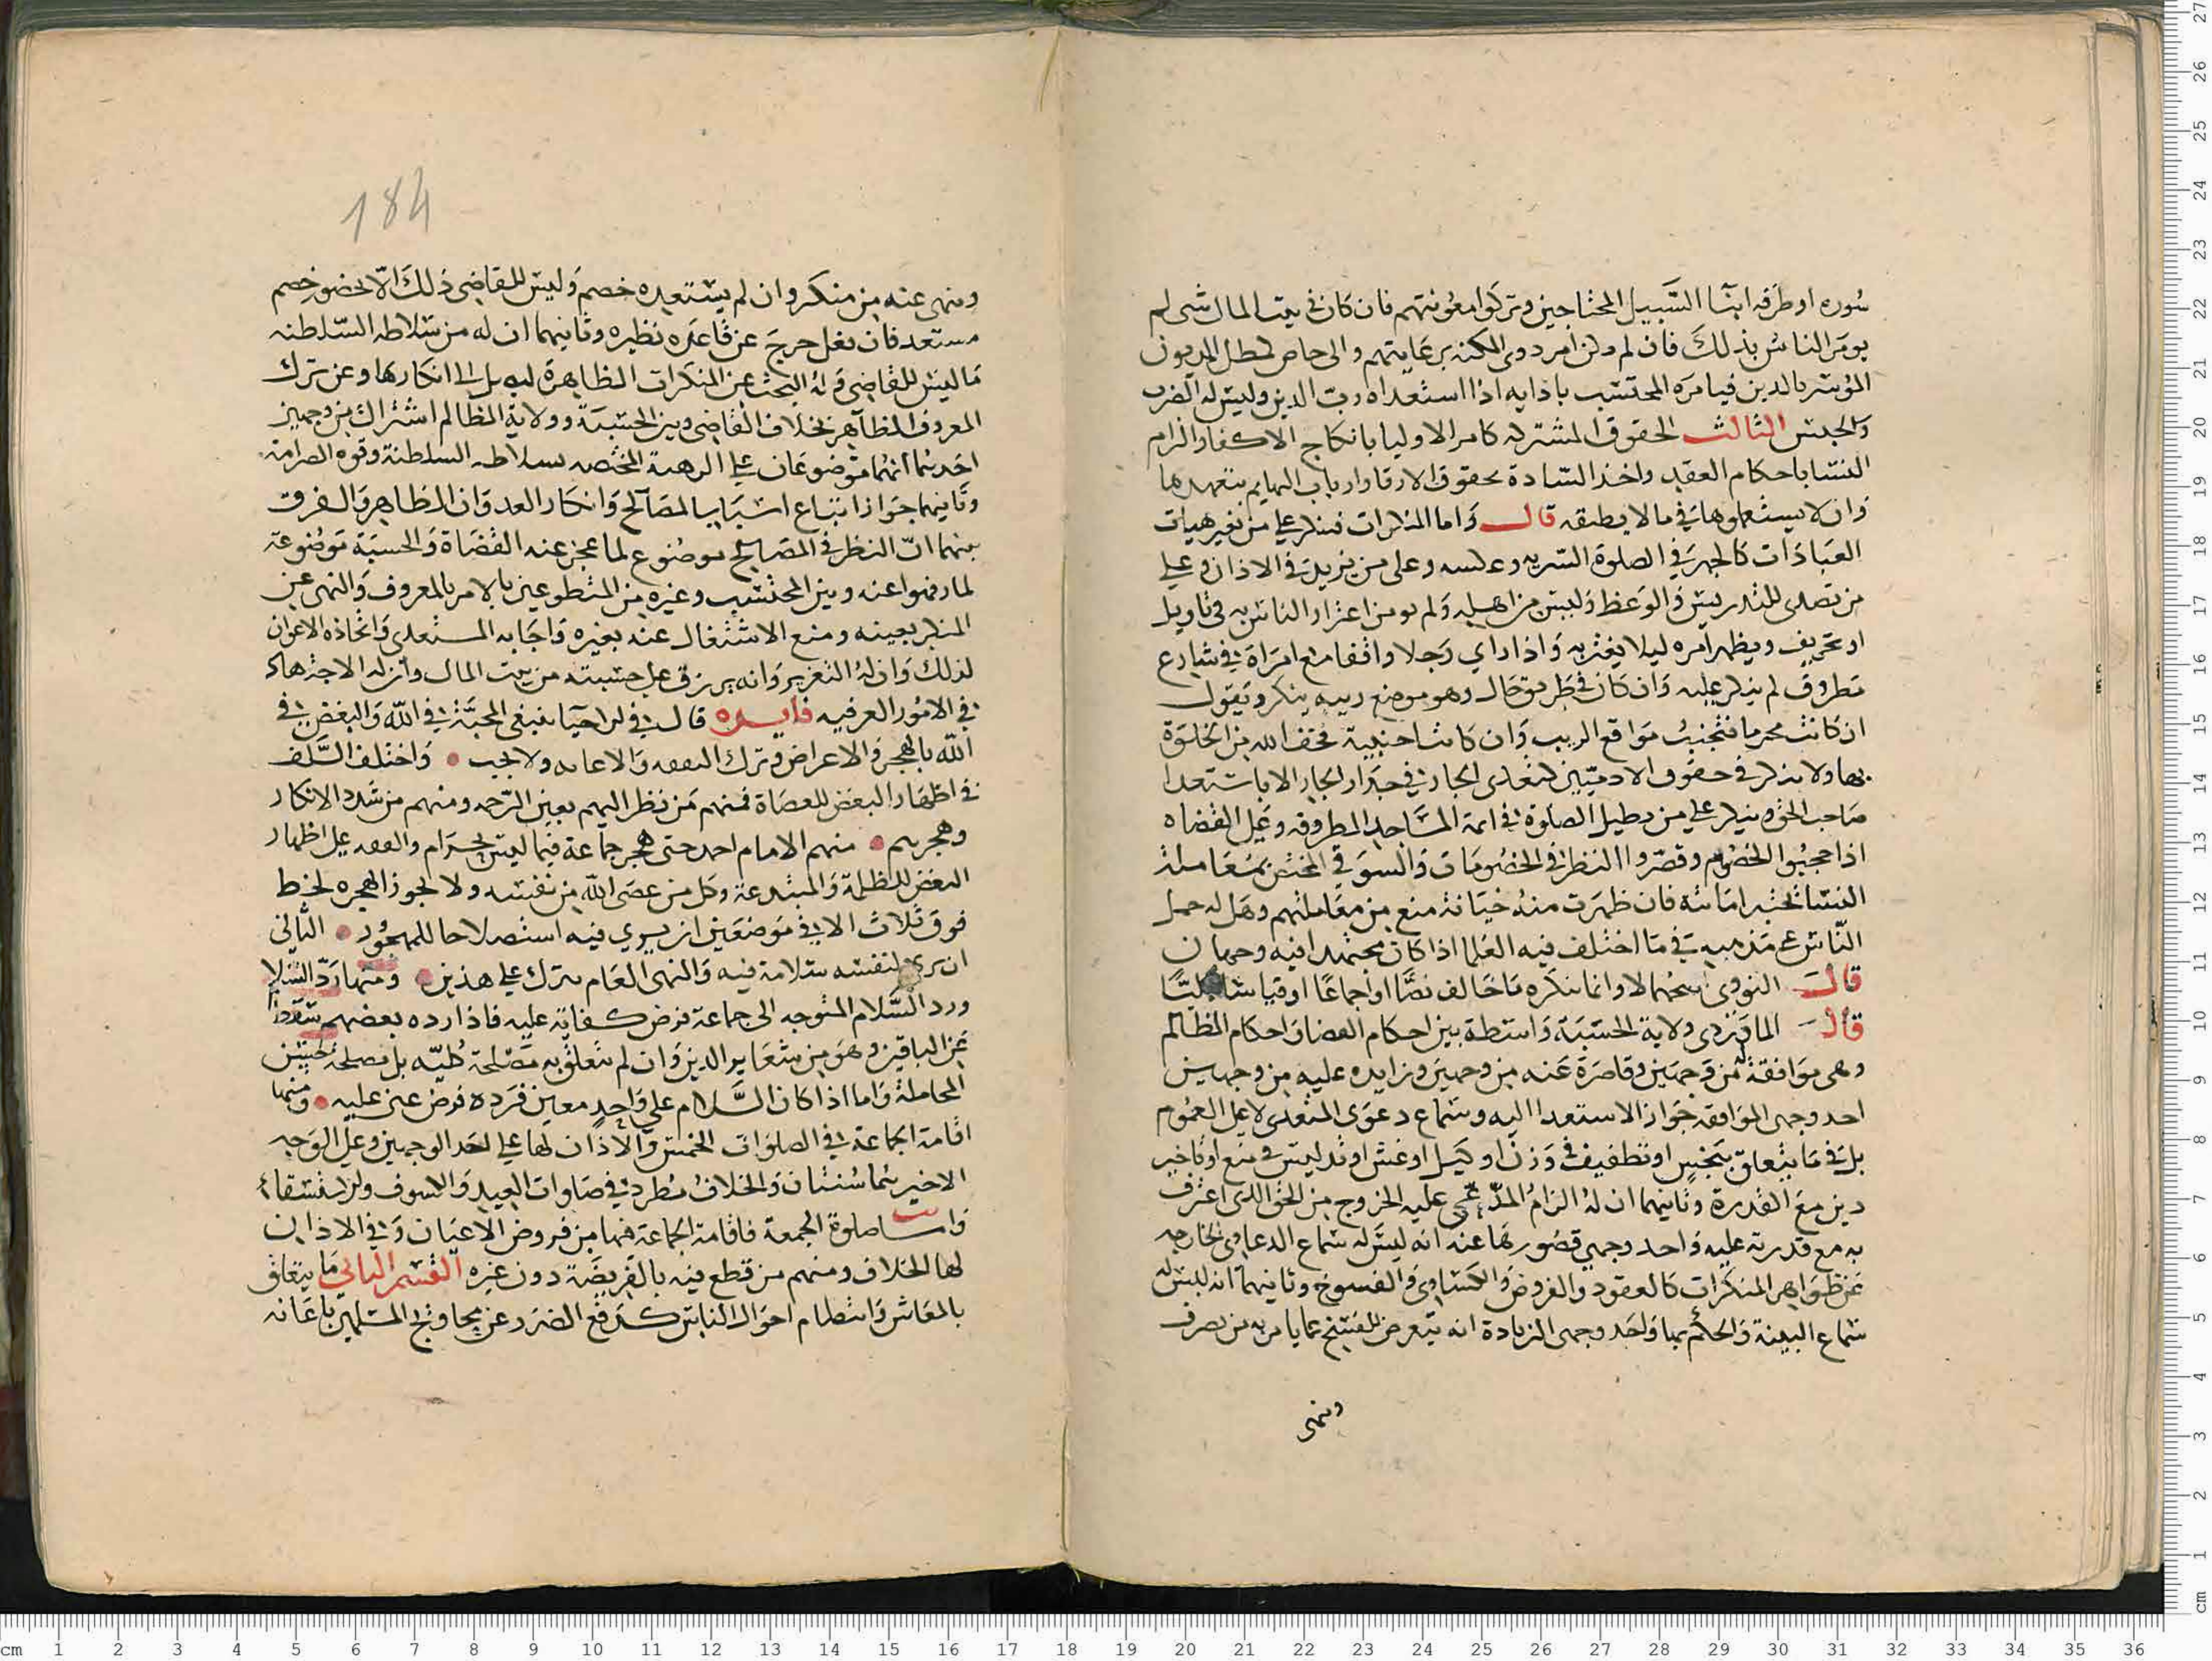 سوره او طرقه ابنا السبيل المحتاجين وتركوا معونتهم فان كان في بيت المال شي لم
يومر الناس بذلك فان لم يكن امر ذوي المكنه برعايتهم والى خاص كمطل المديون
الموسر بالدين فيامره المحتسب بادايه اذا استعداه رب الدين وليس له الضرب
والجنس الثالث الحقوق المشتركه كامر الاوليا بانكاح الاكفا والزام
النسا باحكام العقد واخذ السادة بحقوق الارقا وارباب البهايم بتعهدها
وان لا يستعملوها في ما لا يطيقه قال واما المنكرات فينكر على من يغير هيات
العبادات كالجهر في الصلوة السريه وعكسه وعلى من يزيد في الاذان وعلى
من تصدى للتدريس والوعظ وليس من اهله ولم يومن اغترار الناس به في تاويل
او تحريف ويظهر امره ليلا يغتر به واذا راي رجلا واقفا مع امراة في شارع
مطروق لم ينكر عليه وان كان في طريق خال وهو موضع ريبه ينكر ويقول
ان كانت محرما فتجنب مواقع الريب وان كانت اجنبية فخف الله من الخلوة
بها ولا ينكر في حقوق الادميين كتعدى الجار في جدار الجار الا باستعدا
صاحب الحق وينكر على من يطيل الصلوة في ايمة المساجد المطروقه وعلى القضاه
اذا حجبوا الخصوم وقصروا النظر في الخصومات والسوقي المختص بمعاملة
النسا تختبر امانته فان ظهرت منه خيانة منع من معاملتهم وهل له حمل
الناس على مذهبه في ما اختلف فيه العلما اذا كان مجتهدا فيه وجهان
قال النووي اصحهما لا وانما ينكره ما خالف نصا او اجماعا او قياسا جليا
قال الماوردي ولاية الحسبة واسطة بين احكام القضا واحكام المظالم
وهي موافقة له من وجهين وقاصرة عنه من وجهين وزايده عليه من وجهين
احد وجهى الموافقه جواز الاستعدا اليه وسماع دعوى المتعدى لا على العموم
بل في ما يتعلق ببخس او تطفيف في وزن او كيل او غش او تدليس في منع او تاخير
دين مع القدرة وثانيهما ان له الزام المدعى عليه الخروج من الحق الذي اعترف
به مع قدرته عليه واحد وجهي قصورها عنه انه ليس له سماع الدعاوى الخارجه
عن ظواهر المنكرات كالعقود والفروض والكساوى والفسوخ وثانيهما انه ليس له
سماع البينة والحكم بها واحد وجهى الزيادة انه يتعرض للفسخ عما يامر به من يصرف
وينهى
184
وينهى عنه من منكر وان لم يستعده خصم وليس للقاضي ذلك الا لحضور خصم
مستعد فان فعل حرج عن قاعده نظيره وثانيهما ان له من سلاطه السلطنه
ما ليس للقاضي وله البحث عن المنكرات الظاهرة ليوصل الى انكارها وعن ترك
المعروف الظاهر بخلاف القاضي وبين الحسبة وولاية المظالم اشتراك من وجهين
احديهما انهما موضوعان على الرهبة المختصه بسلاطه السلطنة وقوه الصرامة
وثانيهما جواز اتباع اسباب المصالح وانكار العدوان الظاهر والفرق
بينهما ان النظر في المصالح موضوع لما عجز عنه القضاة والحسبة موضوعة
لما رفهوا عنه وبين المحتسب وغيره من المتطوعين بالامر بالمعروف والنهى عن
المنكر بعينه ومنع الاشتغال عنه بغيره واجابه المستعدى واتخاذه الاعوان
لذلك وان له التعزير وانه يرزق على حسبته من بيت المال وان له الاجتهاد
في الامور العرفيه فايده قال في الاحيا ينبغي المحبة في الله والبغض في
الله بالهجر والاعراض وترك النفقه والاعانه ولا يجب واختلف السلف
في اظهار البغض للعصاة فمنهم من نظر اليهم بعين الرحمه ومنهم من شدد الانكار
وهجرهم منهم الامام احمد حتى هجر جماعة فيما ليس بحرام والفقه على اظهار
البغض للظلمة والمبتدعة وكل من عصى الله من نفسه ولا يجوز الهجره لحظ
فوق ثلاث الا في موضعين ان يري فيه استصلاحا للمهجور الثاني
ان يرى لنفسه سلامة فيه والنهى العام يترك على هذين ومنها رد السلا
ورد السلام المتوجه الى جماعة فرض كفاية عليه فاذا رده بعضهم سقط
عن الباقين وهو من شعاير الدين وان لم يتعلق به مصلحة كليه بل مصلحة حسن
المجاملة واما اذا كان السلام على واحد معين فرده فرض عين عليه ومنها
اقامة الجماعة في الصلوات الخمس والاذان لها على احد الوجهين وعلى الوجه
الاخير هما سنتان والخلاف مطرد في صلوات العيد والكسوف والاستسقاء
واما صلوة الجمعة فاقامة الجماعة فيها من فروض الاعيان وفي الاذان
لها الخلاف ومنهم من قطع فيه بالفريضة دون غيره القسم الثاني ما يتعلق
بالمعاش وانتظام احوال الناس كدفع الضرر عن محاويج المسلمين باعانه